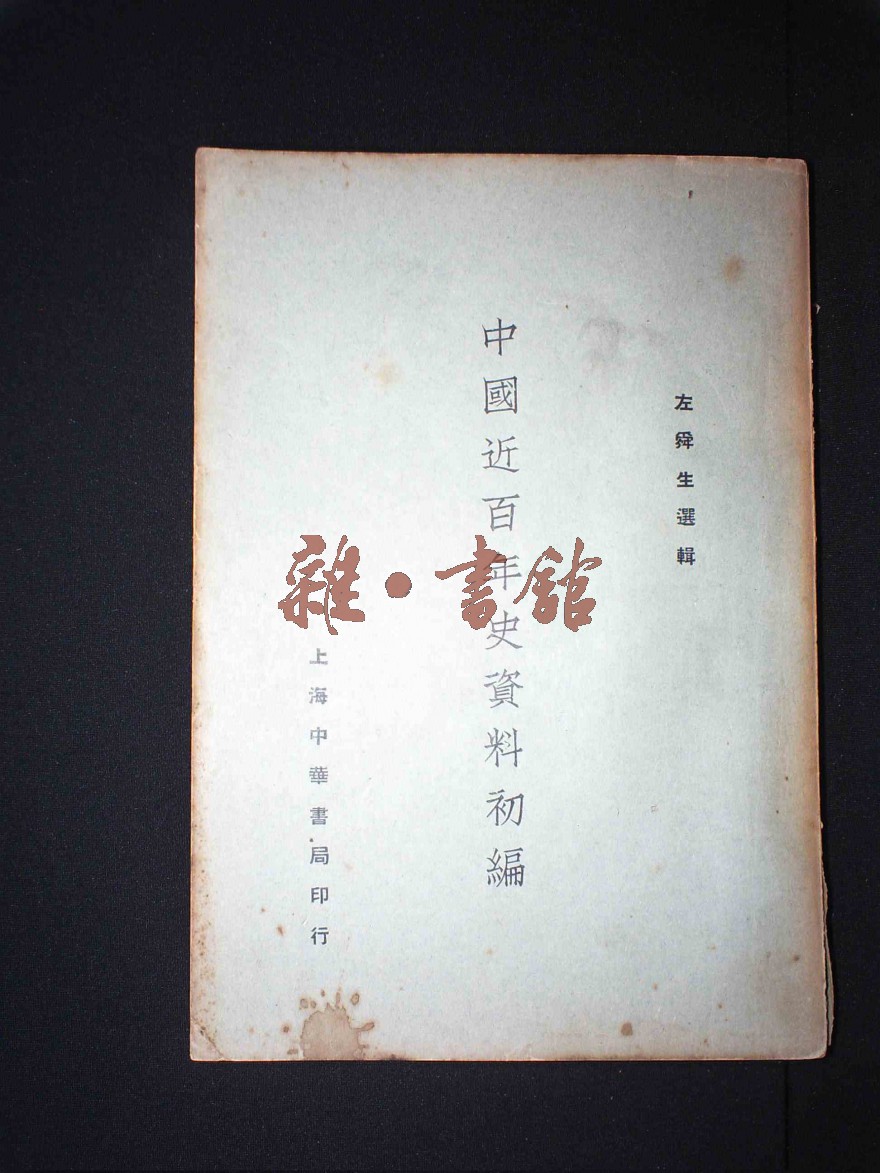 左舜生選輯
中國近百年史資料初編
上海中華書局印行
雜·書館